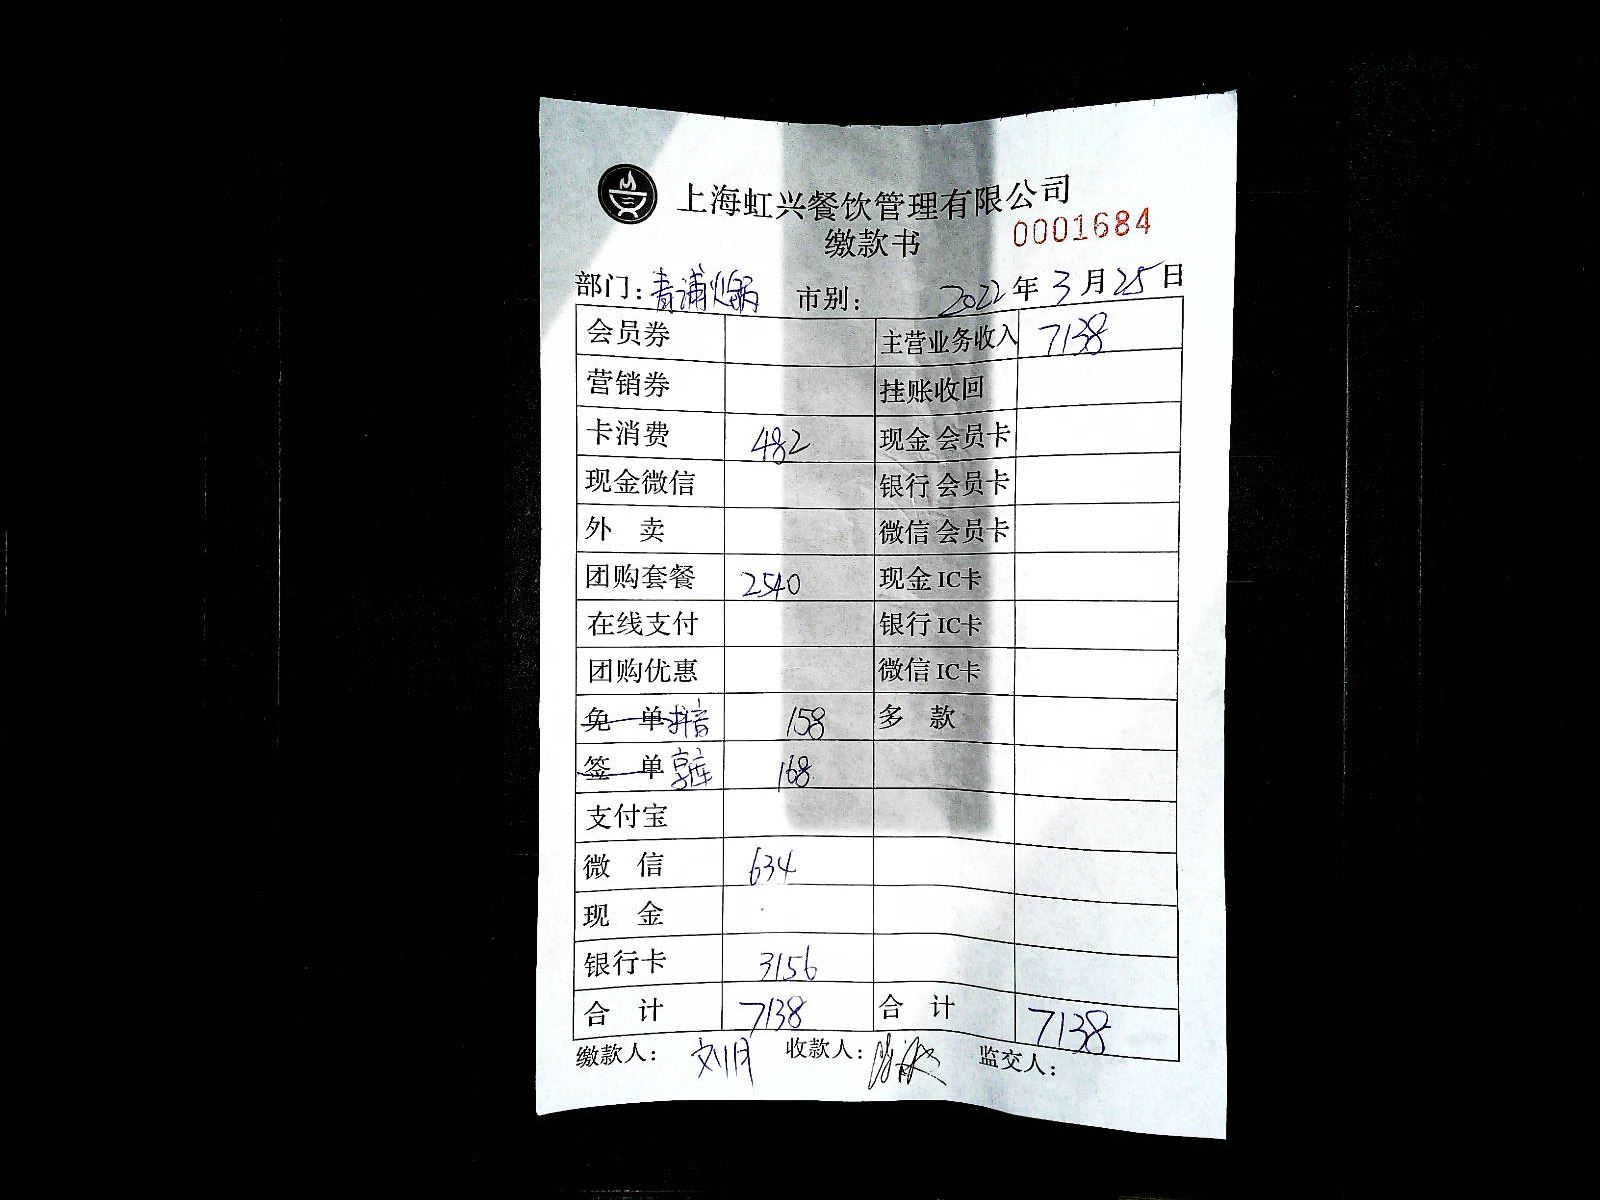 上海虹兴餐饮管理有限公司
缴款书 0001684
部门：青浦火锅 市别： 2022年3月25日
会员券 主营业务收入 7138
营销券 挂账收回
卡消费 482 现金 会员卡
现金微信 银行 会员卡
外 卖 微信 会员卡
团购套餐 2540 现金 IC卡
在线支付 银行 IC卡
团购优惠 微信 IC卡
免 单 抖音 158 多 款
签 单 享库 168
支付宝
微 信 634
现 金
银行卡 3156
合 计 7138 合 计 7138
缴款人： 刘月 收款人： 监交人：